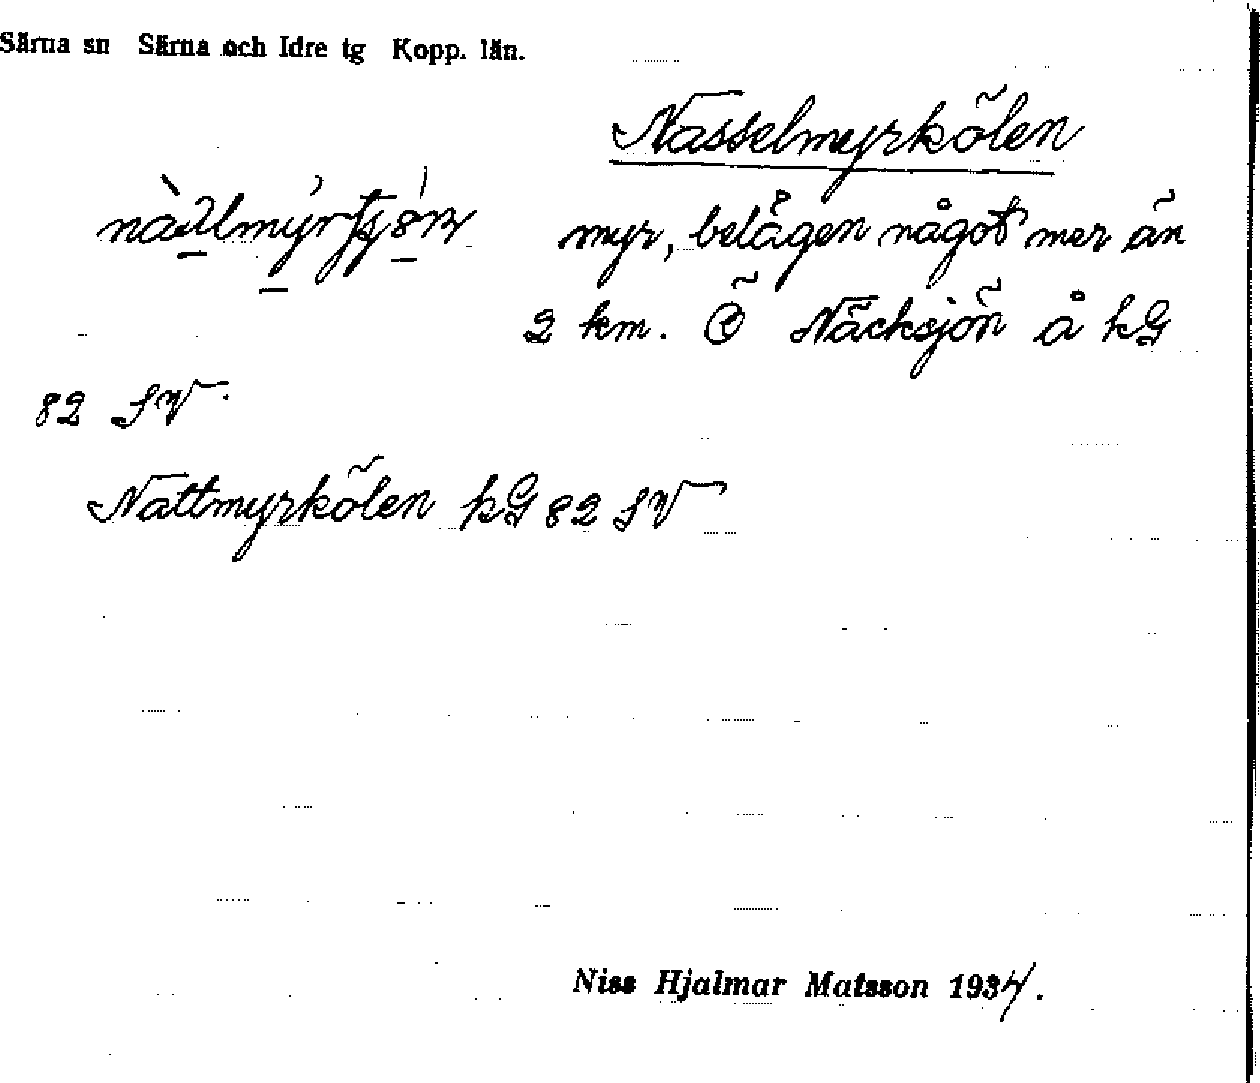 Särna sn Särna och Idre tg Kopp. län.
Nasselmyrkölen
myr, belägen något mer än
2 km. Ö Näcksjön å kG
82 SV.
Nattmyrkölen kG 82 SV
Niss Hjalmar Matsson 1934.